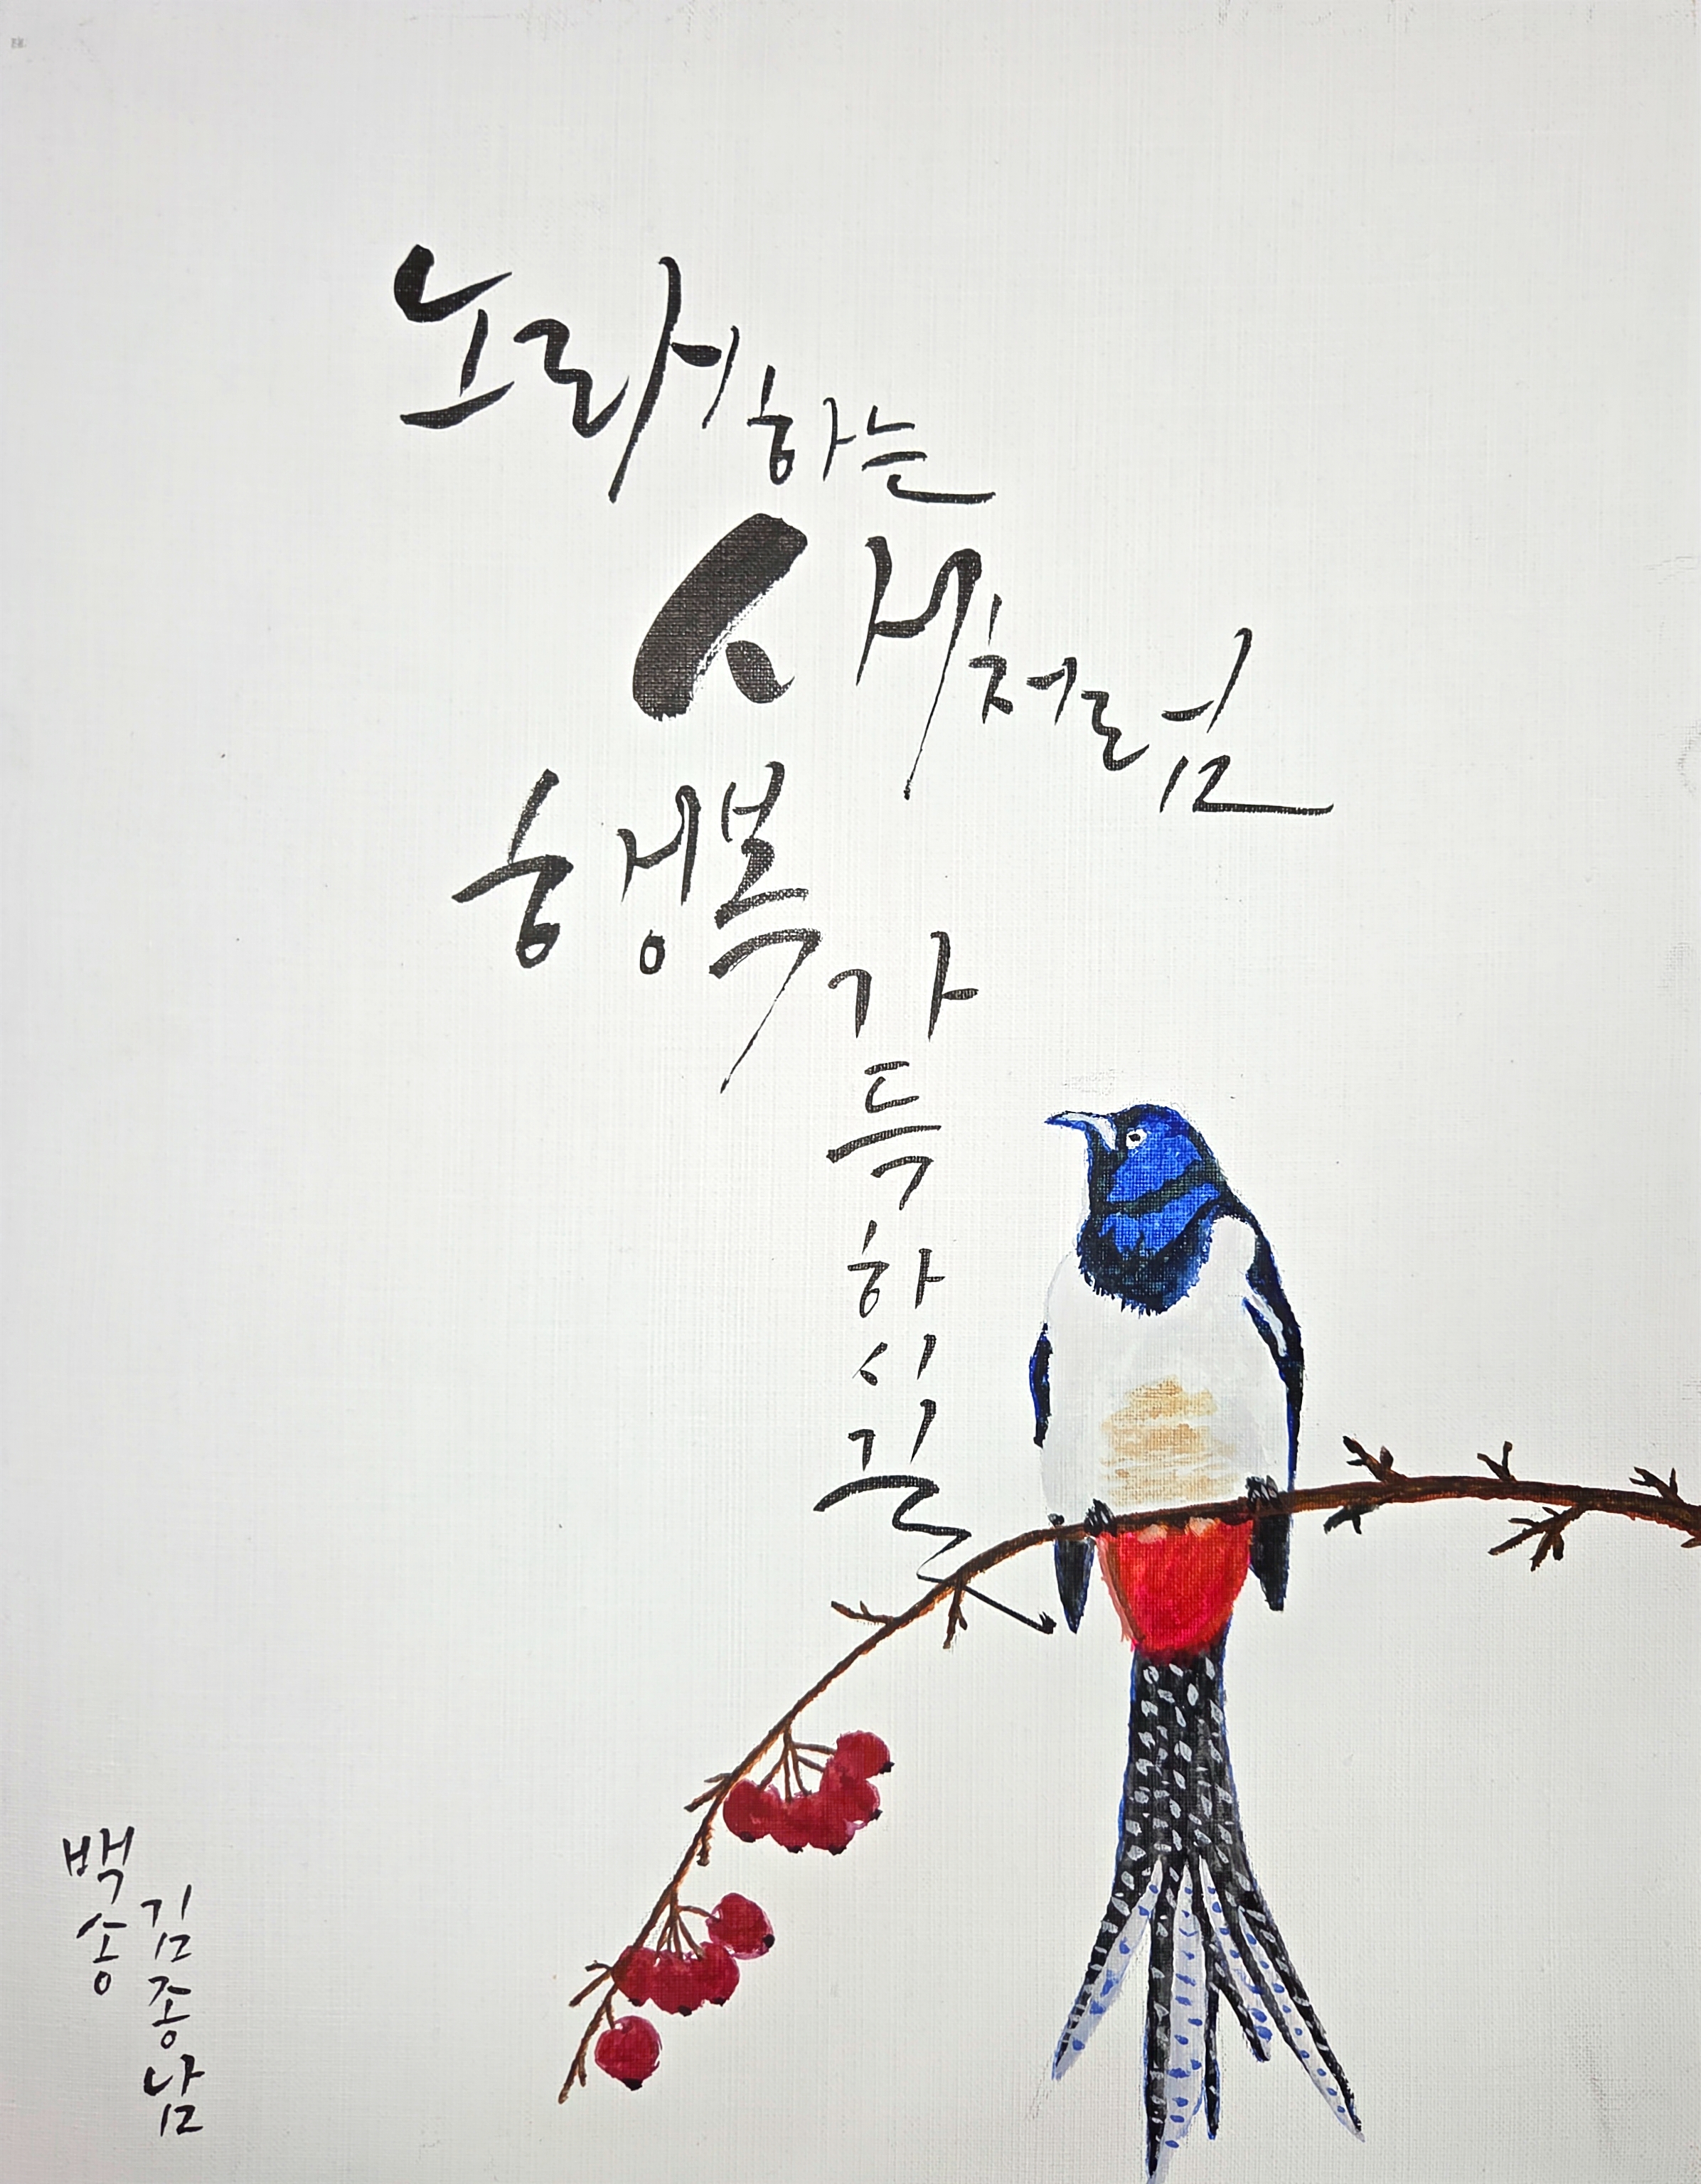 노래하는
새처럼
행복가득하시길
백송
김종남